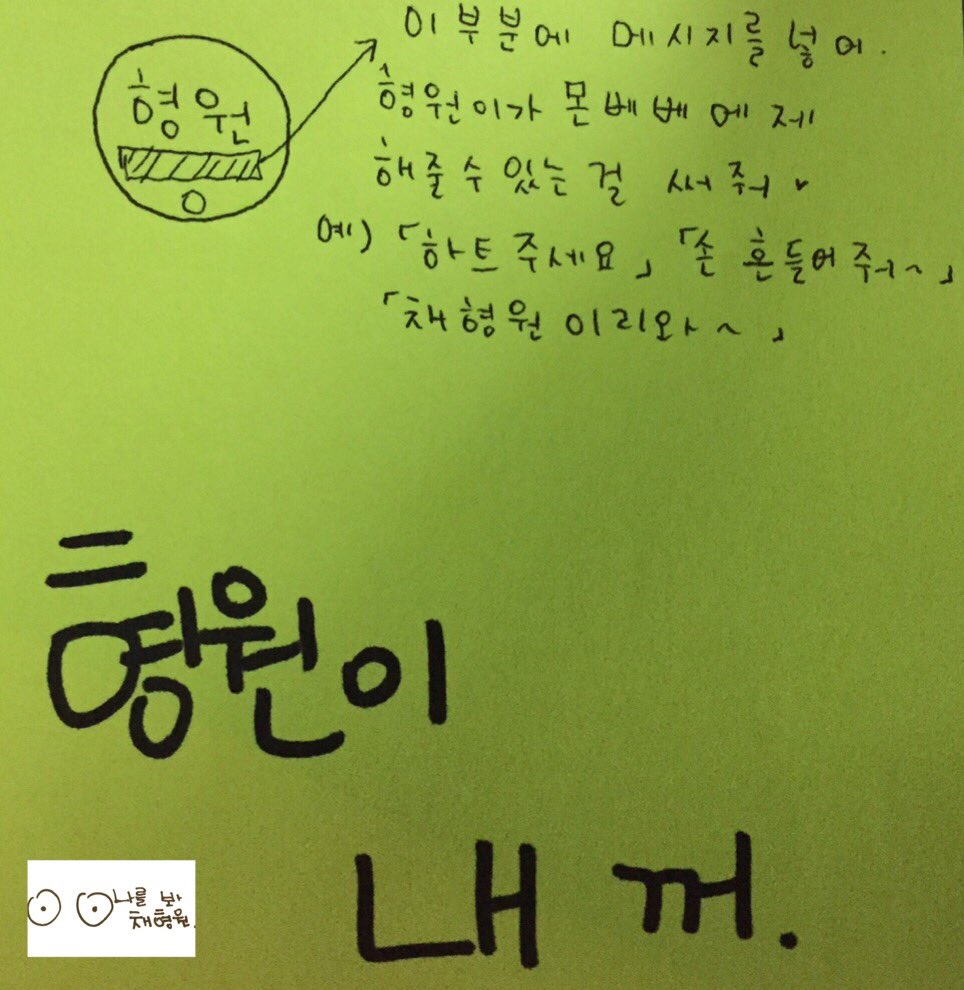 형원
이 부분에 메시지를 넣어.
형원이가 몬베베에제
해줄 수 있는 걸 써줘
예) 「하트 주세요」 「손 흔들어줘~」
「채형원 이리와~」
형원이
내 꺼.
나를 봐
채형원.